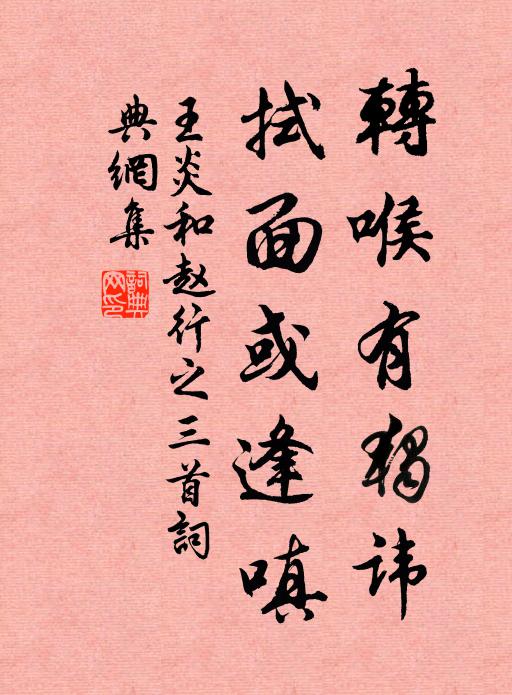 轉喉有觸諱
拭面或逢嗔
王炎和赵行之三首詞
典網集
詞典
网印